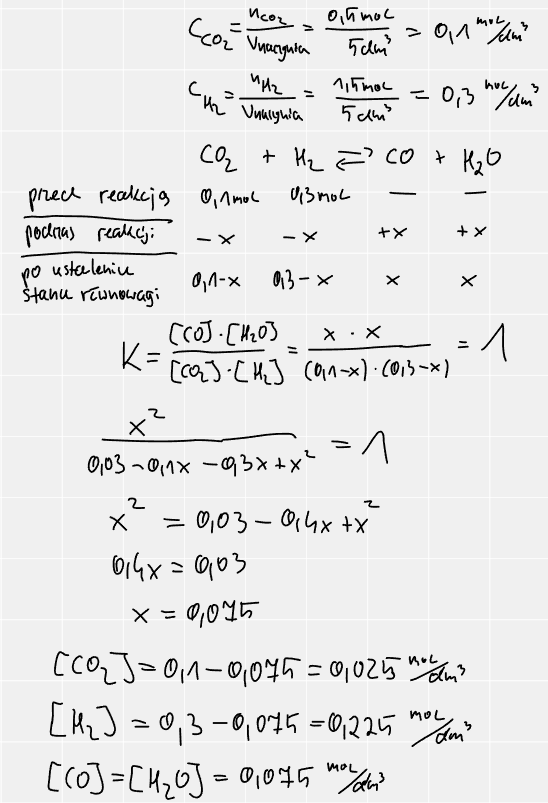 C_CO₂ = n_CO₂ / V_naczynia = 0,5 mol / 5 dm³ = 0,1 mol/dm³
C_H₂ = n_H₂ / V_naczynia = 1,5 mol / 5 dm³ = 0,3 mol/dm³
CO₂ + H₂ ⇌ CO + H₂O
przed reakcją 0,1 mol 0,3 mol — —
podczas reakcji: -x -x +x +x
po ustaleniu stanu równowagi 0,1-x 0,3-x x x
K = [CO]·[H₂O] / [CO₂]·[H₂] = x · x / (0,1-x)·(0,3-x) = 1
x² / 0,03 - 0,1x - 0,3x + x² = 1
x² = 0,03 - 0,4x + x²
0,4x = 0,03
x = 0,075
[CO₂] = 0,1 - 0,075 = 0,025 mol/dm³
[H₂] = 0,3 - 0,075 = 0,225 mol/dm³
[CO] = [H₂O] = 0,075 mol/dm³